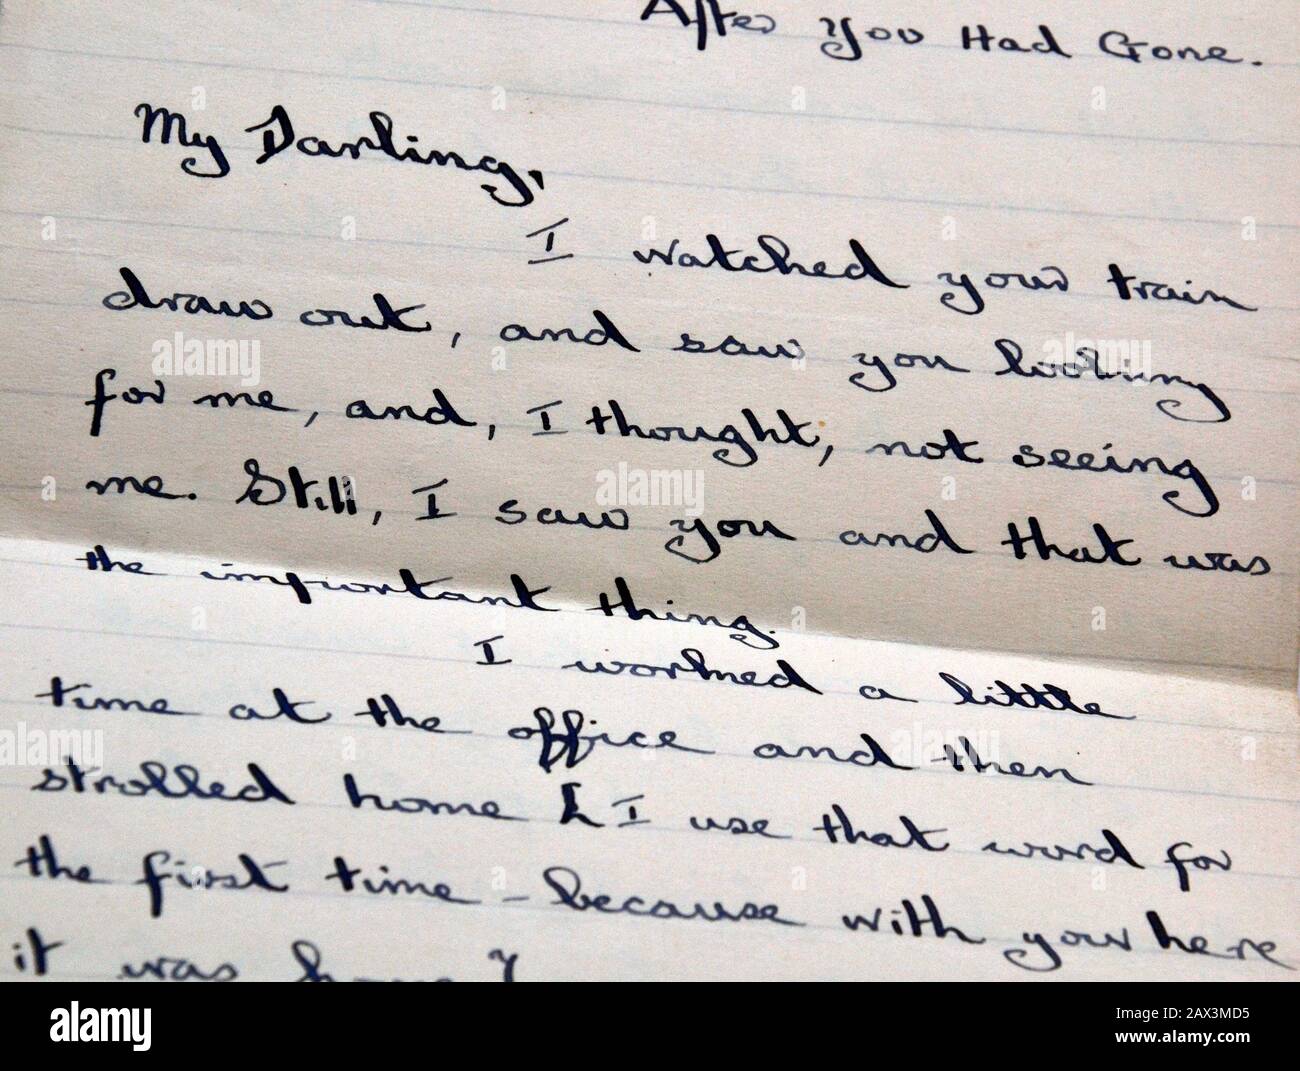 After You Had Gone.
My Darling,
I watched your train
draw out, and saw you looking
for me, and, I thought, not seeing
me. Still, I saw you and that was
the important thing.
I worked a little
time at the office and then
strolled home [ I use that word for
the first time - because with you here
it was home ]
alamy
Image ID: 2AX3MD5
www.alamy.com